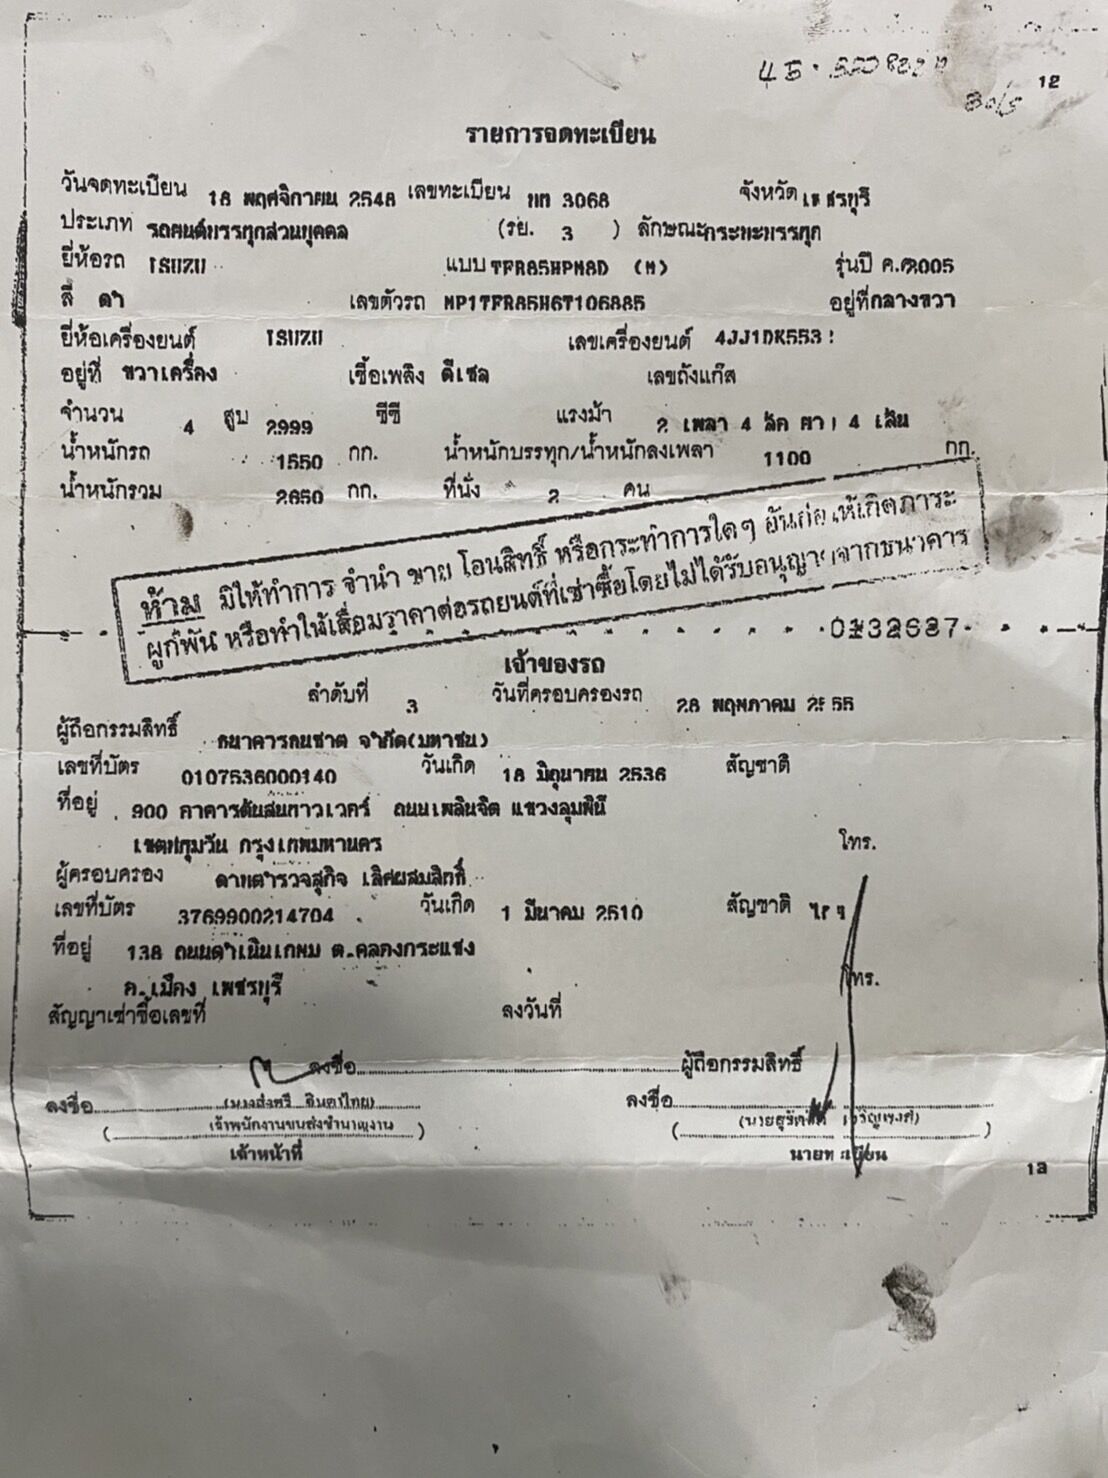 12
30/5
รายการจดทะเบียน
วันจดทะเบียน 18 พฤศจิกายน 2548 เลขทะเบียน บต 3068 จังหวัด เพชรบุรี
ประเภท รถยนต์บรรทุกส่วนบุคคล (รย. 3 ) ลักษณะ กระบะบรรทุก
ยี่ห้อรถ ISUZU แบบ TFR85HPM8D (M) รุ่นปี ค.ศ. 2005
สี ดำ เลขตัวรถ MP1TFR85H6T106885 อยู่ที่ กลางขวา
ยี่ห้อเครื่องยนต์ ISUZU เลขเครื่องยนต์ 4JJ1DK553
อยู่ที่ ขวาเครื่อง เชื้อเพลิง ดีเซล เลขถังแก๊ส
จำนวน 4 สูบ 2999 ซีซี แรงม้า 2 เพลา 4 ล้อ ยาง 4 เส้น
น้ำหนักรถ 1550 กก. น้ำหนักบรรทุก/น้ำหนักลงเพลา 1100 กก.
น้ำหนักรวม 2650 กก. ที่นั่ง 2 คน
ห้าม มิให้ทำการ จำนำ ขาย โอนสิทธิ์ หรือกระทำการใดๆ อันก่อให้เกิดภาระ
ผูกพัน หรือทำให้เสื่อมราคาต่อรถยนต์ที่เช่าซื้อโดยไม่ได้รับอนุญาตจากธนาคาร
0232687
เจ้าของรถ
ลำดับที่ 3 วันที่ครอบครองรถ 28 พฤษภาคม 2555
ผู้ถือกรรมสิทธิ์ ธนาคารธนชาต จำกัด(มหาชน)
เลขที่บัตร 0107536000140 วันเกิด 18 มิถุนายน 2536 สัญชาติ
ที่อยู่ 900 อาคารต้นสนทาวเวอร์ ถนนเพลินจิต แขวงลุมพินี
เขตปทุมวัน กรุงเทพมหานคร โทร.
ผู้ครอบครอง ดาบตำรวจสุกิจ เลิศผสมสิทธิ์
เลขที่บัตร 3769900214704 วันเกิด 1 มีนาคม 2510 สัญชาติ ไทย
ที่อยู่ 138 ถนนดำเนินเกษม ต.คลองกระแชง
อ.เมือง เพชรบุรี โทร.
สัญญาเช่าซื้อเลขที่ ลงวันที่
ลงชื่อ ผู้ถือกรรมสิทธิ์
ลงชื่อ ลงชื่อ
เจ้าพนักงานขนส่งชำนาญงาน
เจ้าหน้าที่ นายทะเบียน
13